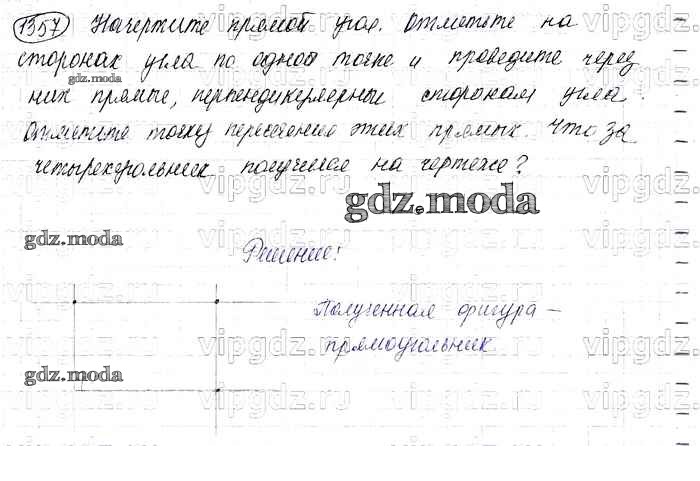 1357 Начертите прямой угол. Отметьте на
сторонах угла по одной точке и проведите через
gdz.moda
них прямые, перпендикулярные сторонам угла.
Отметьте точку пересечения этих прямых. Что за
четырехугольник получился на чертеже?
gdz.moda
gdz.moda
Решение:
Полученная фигура –
прямоугольник
gdz.moda
vipgdz.ru vipgdz.ru vipgdz.ru vipgdz.ru